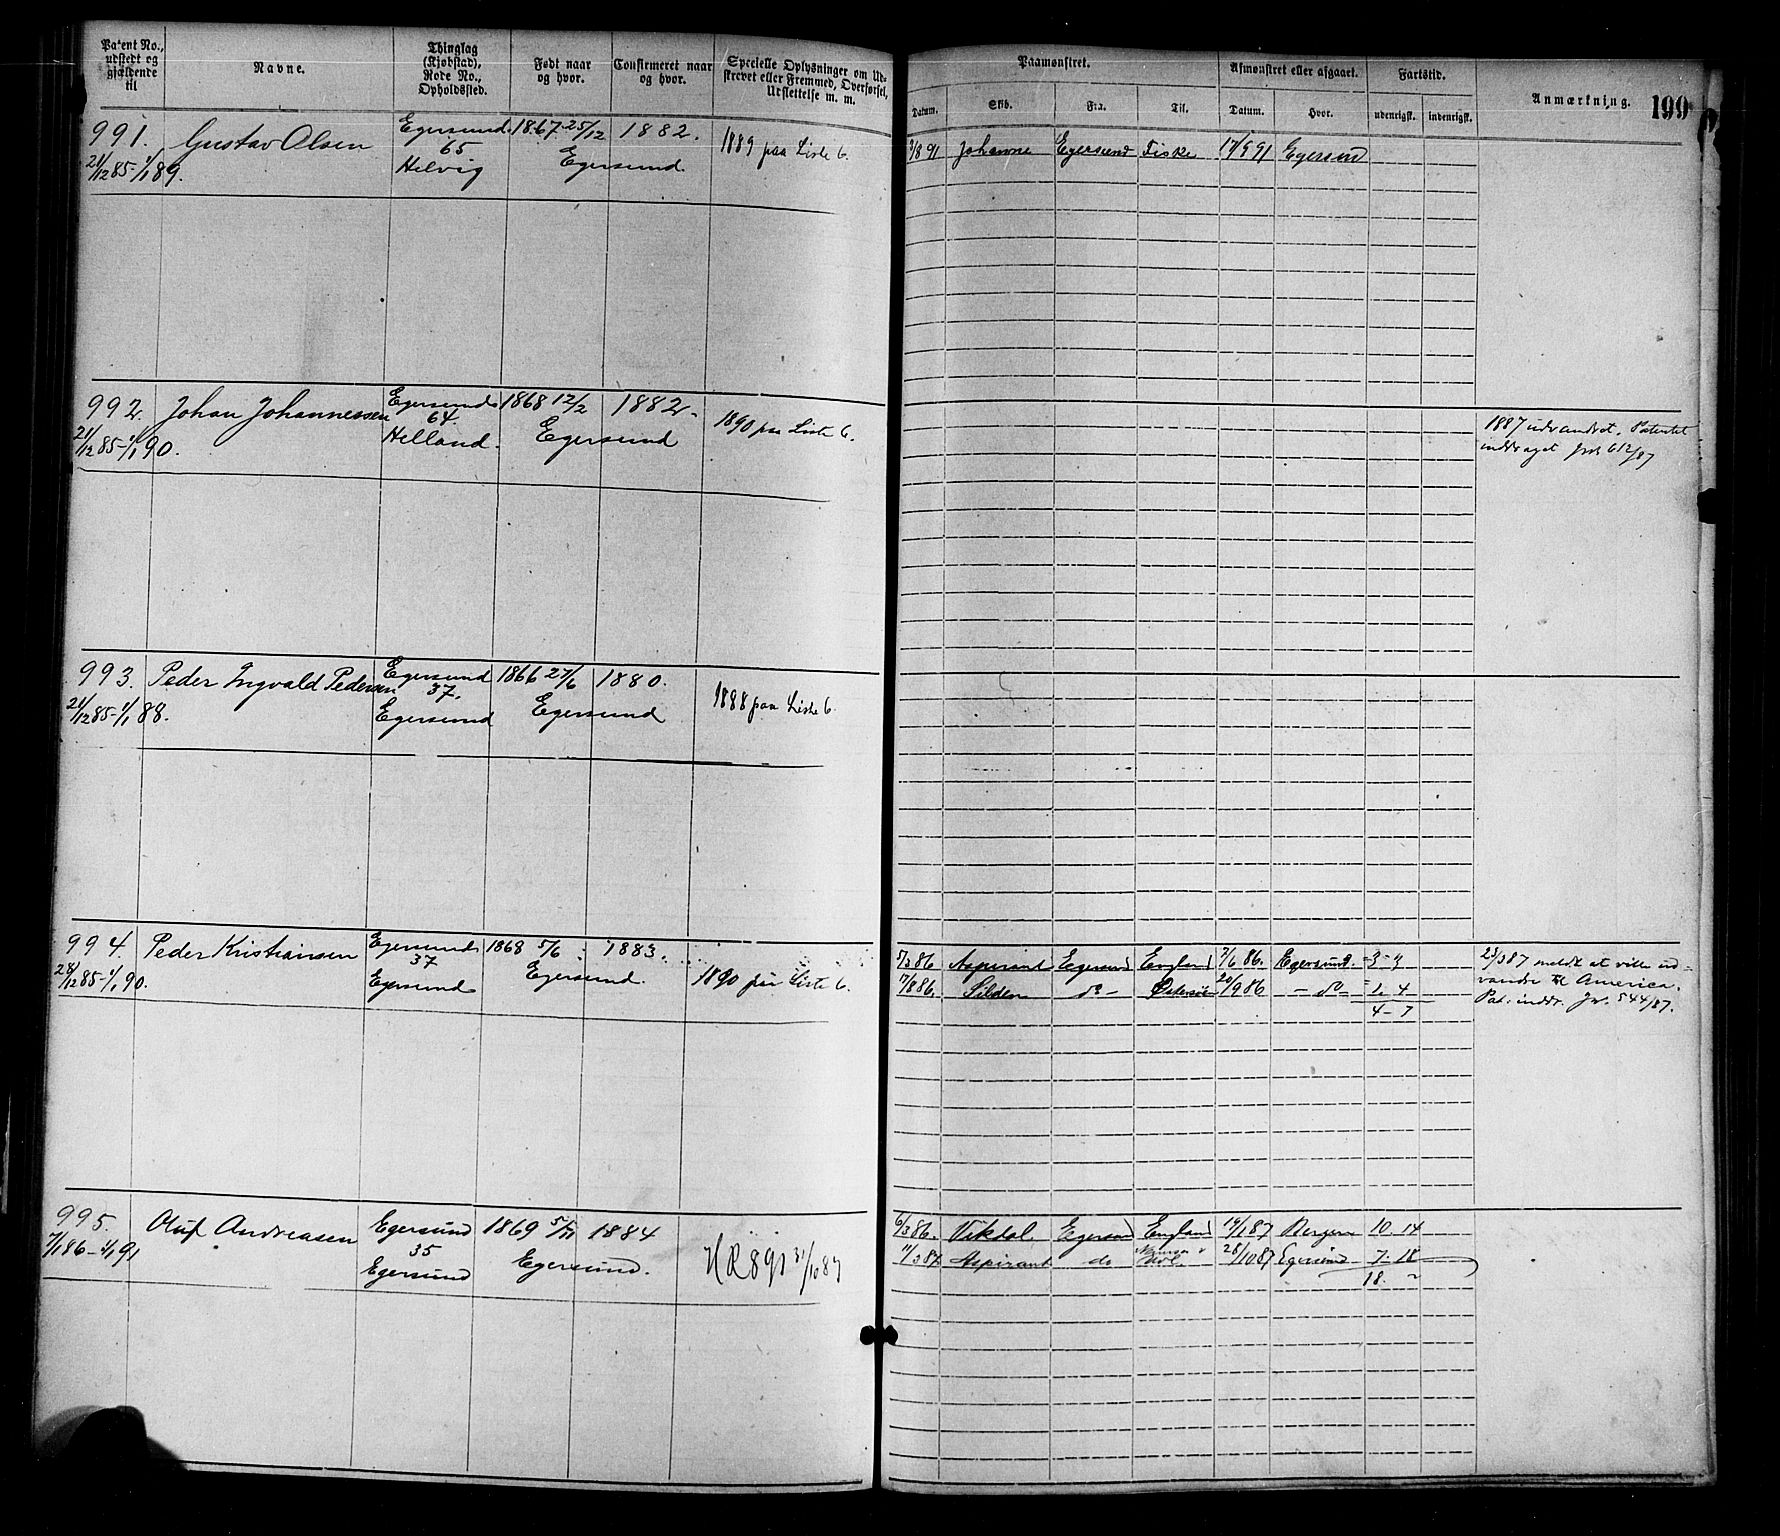 Patent No., udstedt og gjældende til
Navne.
Thinglag (Kjøbstad), Rode No., Opholdssted.
Født naar og hvor.
Confirmeret naar og hvor.
Specielle Oplysninger om Udskrevet eller Fremmed, Overførsel, Udslettelse m. m.
Paamønstret.
Datum.
Skib.
Fra.
Til.
Afmønstret eller afgaaet.
Datum.
Hvor.
Fartstid.
udenrigsk.
indenrigsk.
Anmærkning.
199
991. Gustav Olsen Egersund 1867 25/12 1882.
21/12 85-1/1 89. 65 Egersund.
Helvig
1889 paa Liste 6.
/8 91 Johanne Egersund Fiske 17/9 91 Egersund
992. Johan Johannessen Egersund 1868 12/2 1882.
21/12 85-1/1 90. 64. Egersund
Helland.
1890 paa Liste 6.
1887 udvandret. Patentet
inddraget Jrnl 612/87
993. Peder Ingvald Pedersen Egersund 1866 27/6 1880.
21/12 85-1/1 88. 37. Egersund
Egersund
1888 paa Liste 6.
994. Peder Kristiansen Egersund 1868 5/6 1883.
28/12 85-1/1 90. 37 Egersund.
Egersund
1890 paa Liste 6.
5/3 86 Aspirant Egersund England 7/6 86. Egersund. 3-3
7/8 86. Silden do Østersøen 20/9 86 - do - 1. 4
4-7
23/3 87 meldt at ville ud-
vandre til America.
Pat. inddr. Jr. 544/87.
995. Oluf Andreasen Egersund 1869 5/11 1884
7/1 86-1/1 91 35 Egersund.
Egersund
HR 891 31/10 87
6/3 86. Vikdal. Egersund England 19/1 87 Bergen 10. 14
11/3 87 Aspirant do 28/10 87 Egersund 7-18
18. "